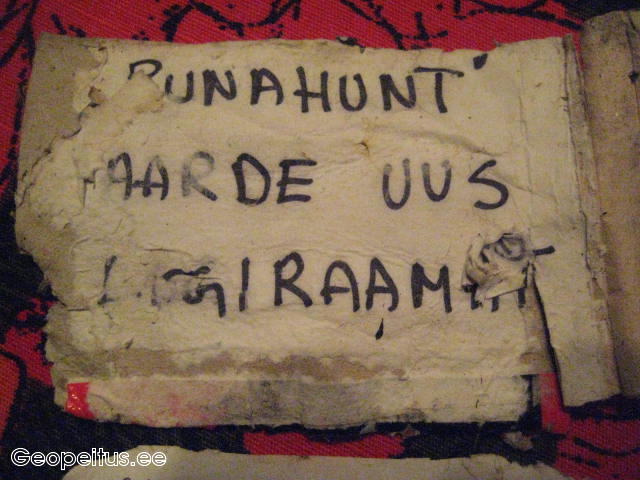 PUNAHUNT'
AARDE UUS
LOGIRAAMAT
Geopeitus.ee